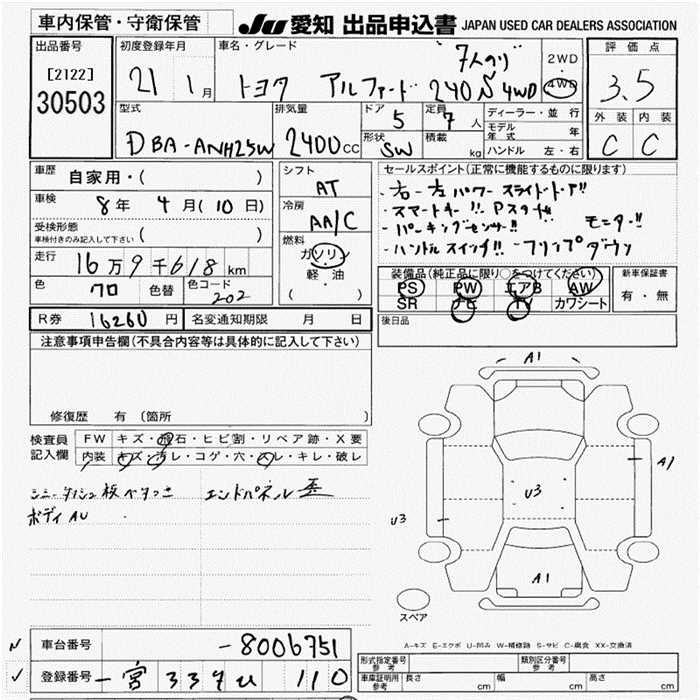 車内保管・守衛保管
JU 愛知 出品申込書 JAPAN USED CAR DEALERS ASSOCIATION
出品番号
[2122]
30503
初度登録年月
21 1月
車名・グレード
7人のり
トヨタ アルファード 240 S 4WD
2WD
・
4WD
評価点
3.5
外装 内装
C C
型式
DBA-ANH25W
排気量
2400cc
ドア
5
定員
7人
形状
SW
積載
kg
ディーラー・並行
モデル年式 年
ハンドル 左・右
車歴
自家用・( )
車検
8年 4月(10日)
受検形態
車検付きのみ記入して下さい ( )
走行
16万9千618km
色
クロ
色替
色コード
202
シフト
AT
冷房
AA/C
燃料
ガソリン
軽・油
( ・ )
セールスポイント(正常に機能するものに限ります)
・右・左パワースライドドア!!
・スマートキー!! Pスタート!!
・パーキングセンサー!! モニター!!
・ハンドルスイッチ!! フリップダウン
装備品(純正品に限り○をつけてください)
PS PW エアB AW
SR ナビ TV カワシート
新車保証書
有・無
R券 16260円
名変通知期限 月 日
後日品
注意事項申告欄(不具合内容等は具体的に記入して下さい)
修復歴 有(箇所 )
検査員記入欄
FW キズ・飛石・ヒビ割・リペア跡・X要
内装 キズ・汚レ・コゲ・穴・スレ・キレ・破レ
エンドパネル
ボディAU
A1
A1
U3
U3
A1
スペア
A-キズ E-エクボ U-凹み W-補修跡 S-サビ C-腐食 XX-交換済
車台番号
-8006751
登録番号
一宮 339 110
形式指定番号 参考
類別区分番号 参考
車庫証明用 参考 長さ cm 幅 cm 高さ cm